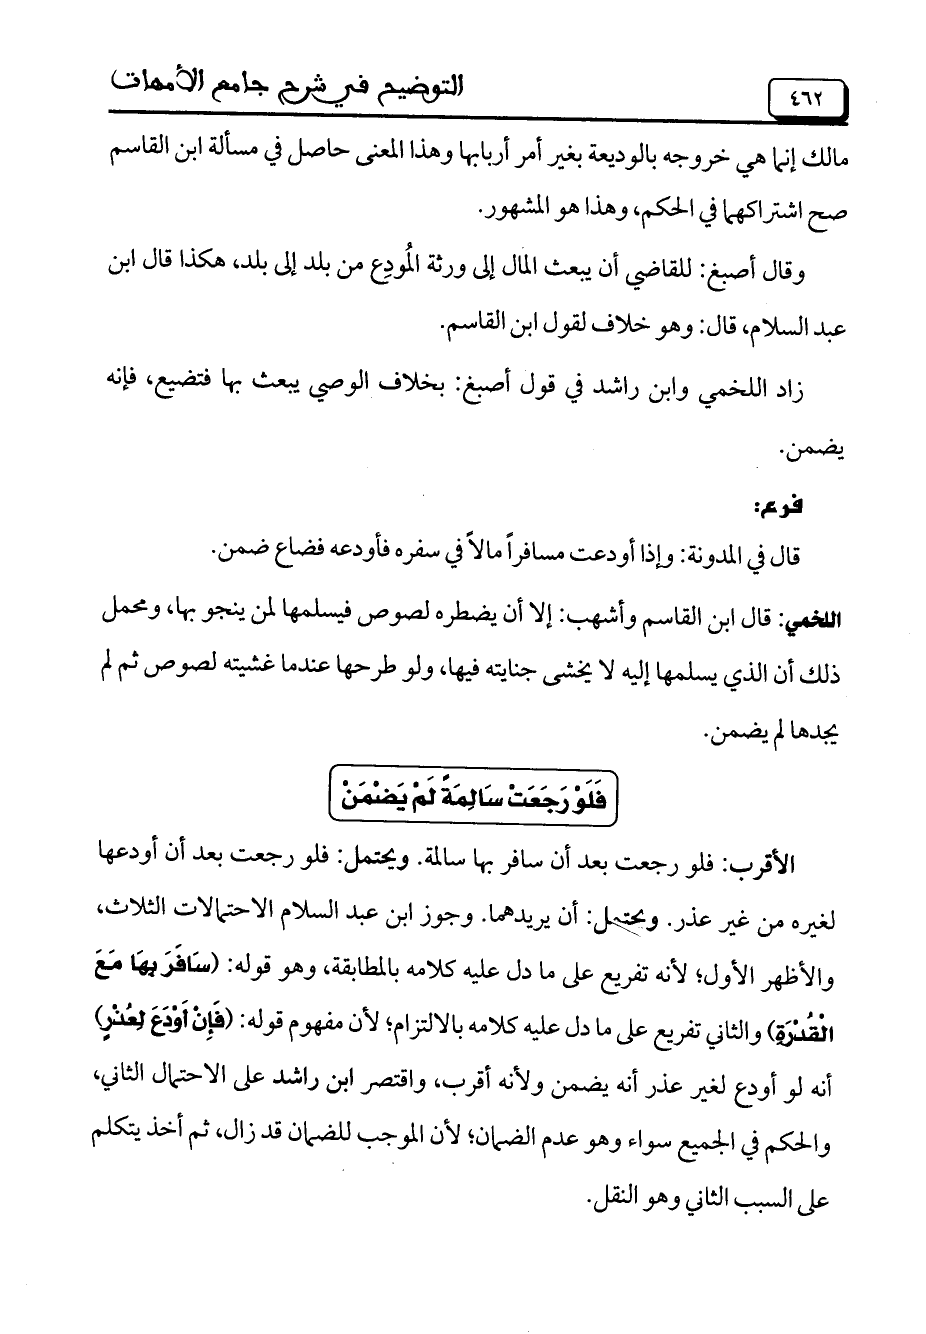 التوضيح في شرح جامع الأمهات
٤٦٢
مالك إنما هي خروجه بالوديعة بغير أمر أربابها وهذا المعنى حاصل في مسألة ابن القاسم
صح اشتراكهما في الحكم، وهذا هو المشهور.
وقال أصبغ: للقاضي أن يبعث المال إلى ورثة المُودِع من بلد إلى بلد، هكذا قال ابن
عبد السلام، قال: وهو خلاف لقول ابن القاسم.
زاد اللخمي وابن راشد في قول أصبغ: بخلاف الوصي يبعث بها فتضيع، فإنه
يضمن.
فرع:
قال في المدونة: وإذا أودعت مسافراً مالاً في سفره فأودعه فضاع ضمن.
اللخمي: قال ابن القاسم وأشهب: إلا أن يضطره لصوص فيسلمها لمن ينجو بها، ومحمل
ذلك أن الذي يسلمها إليه لا يخشى جنايته فيها، ولو طرحها عندما غشيته لصوص ثم لم
يجدها لم يضمن.
فَلَوْ رَجَعَتْ سَالِمَةً لَمْ يَضْمَنْ
الأقرب: فلو رجعت بعد أن سافر بها سالمة. ويحتمل: فلو رجعت بعد أن أودعها
لغيره من غير عذر. ويحتمل: أن يريدهما. وجوز ابن عبد السلام الاحتمالات الثلاث،
والأظهر الأول؛ لأنه تفريع على ما دل عليه كلامه بالمطابقة، وهو قوله: (سَافَرَ بِهَا مَعَ
الْقُدْرَةِ) والثاني تفريع على ما دل عليه كلامه بالالتزام؛ لأن مفهوم قوله: (فَإِنْ أَوْدَعَ لِعُذْرٍ)
أنه لو أودع لغير عذر أنه يضمن ولأنه أقرب، واقتصر ابن راشد على الاحتمال الثاني،
والحكم في الجميع سواء وهو عدم الضمان؛ لأن الموجب للضمان قد زال، ثم أخذ يتكلم
على السبب الثاني وهو النقل.